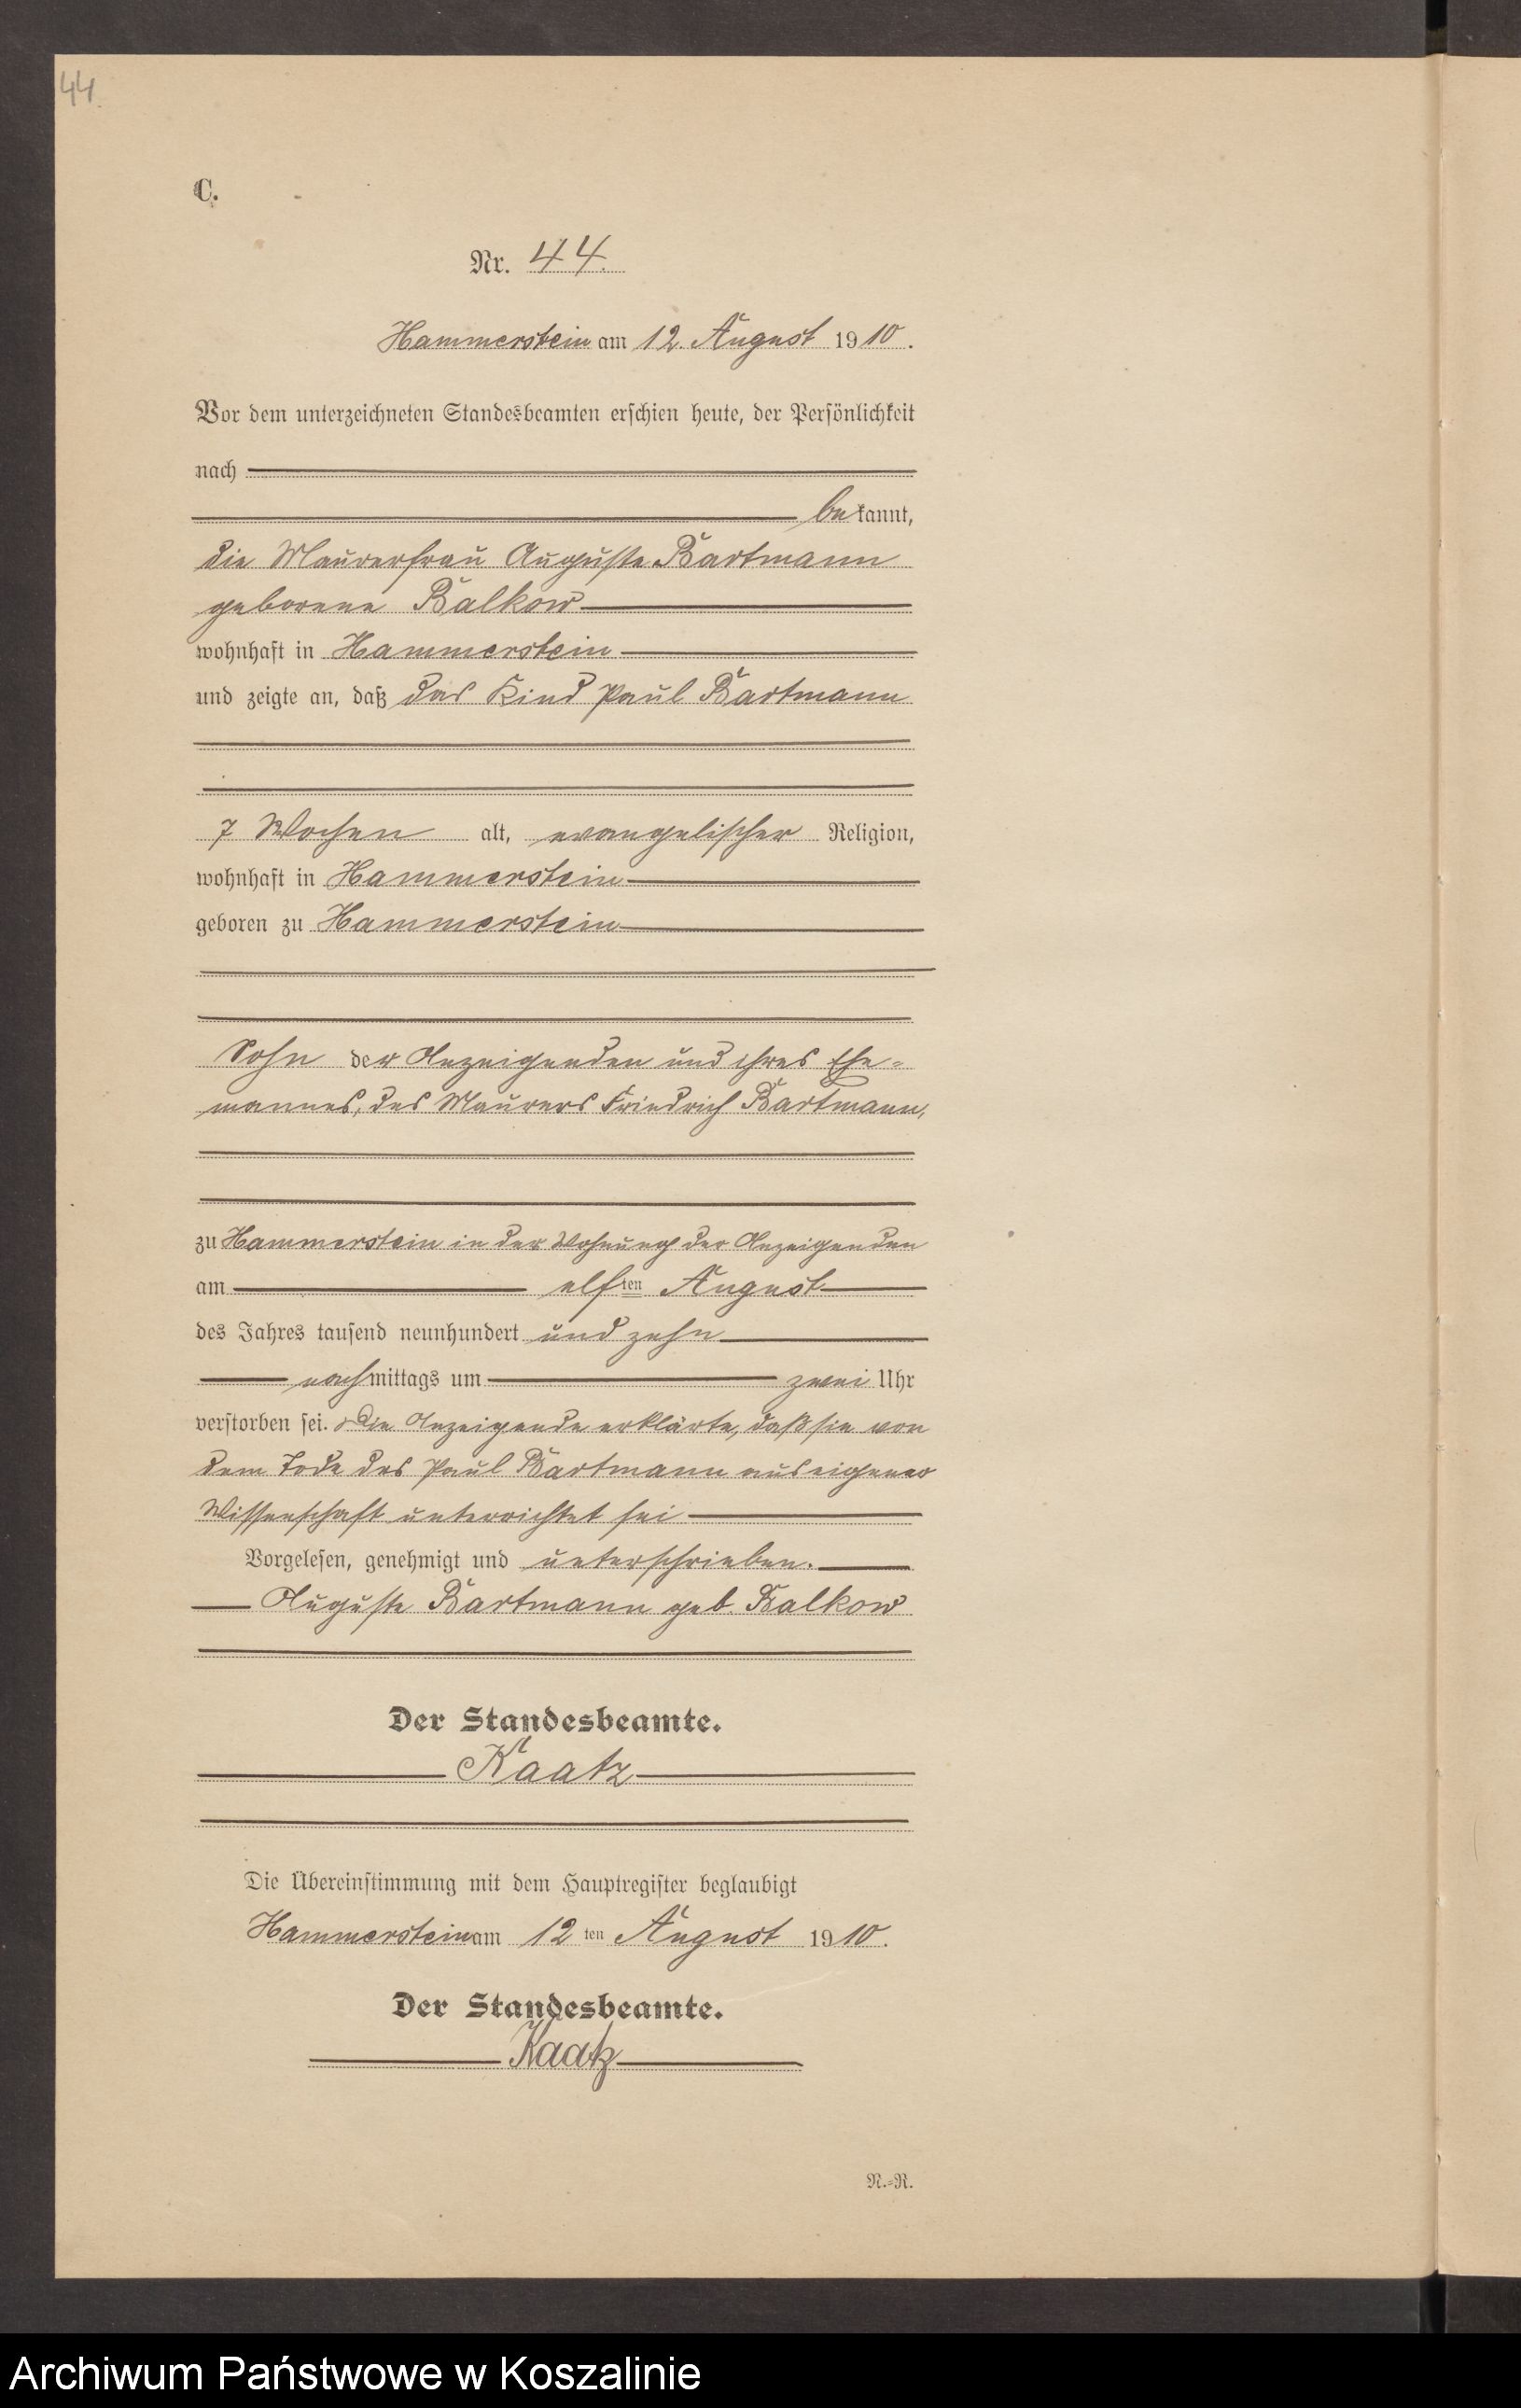 44.
C.
Nr. 44.
Hammerstein am 12. August 1910.
Vor dem unterzeichneten Standesbeamten erschien heute, der Persönlichkeit
nach
bekannt,
die Maurerfrau Auguste Bartmann
geborene Balkow
wohnhaft in Hammerstein
und zeigte an, daß das Kind Paul Bartmann
7 Wochen alt, evangelischer Religion,
wohnhaft in Hammerstein
geboren zu Hammerstein
Sohn der Anzeigenden und ihres Ehe=
mannes, des Maurers Friedrich Bartmann,
zu Hammerstein in der Wohnung der Anzeigenden
am elften August
des Jahres tausend neunhundert und zehn
nachmittags um zwei Uhr
verstorben sei. Die Anzeigende erklärte, daß sie von
dem Tode des Paul Bartmann aus eigener
Wissenschaft unterrichtet sei
Vorgelesen, genehmigt und unterschrieben.
Auguste Bartmann geb. Balkow
Der Standesbeamte.
Kaatz
Die Übereinstimmung mit dem Hauptregister beglaubigt
Hammerstein am 12ten August 1910.
Der Standesbeamte.
Kaatz
N.=R.
Archiwum Państwowe w Koszalinie